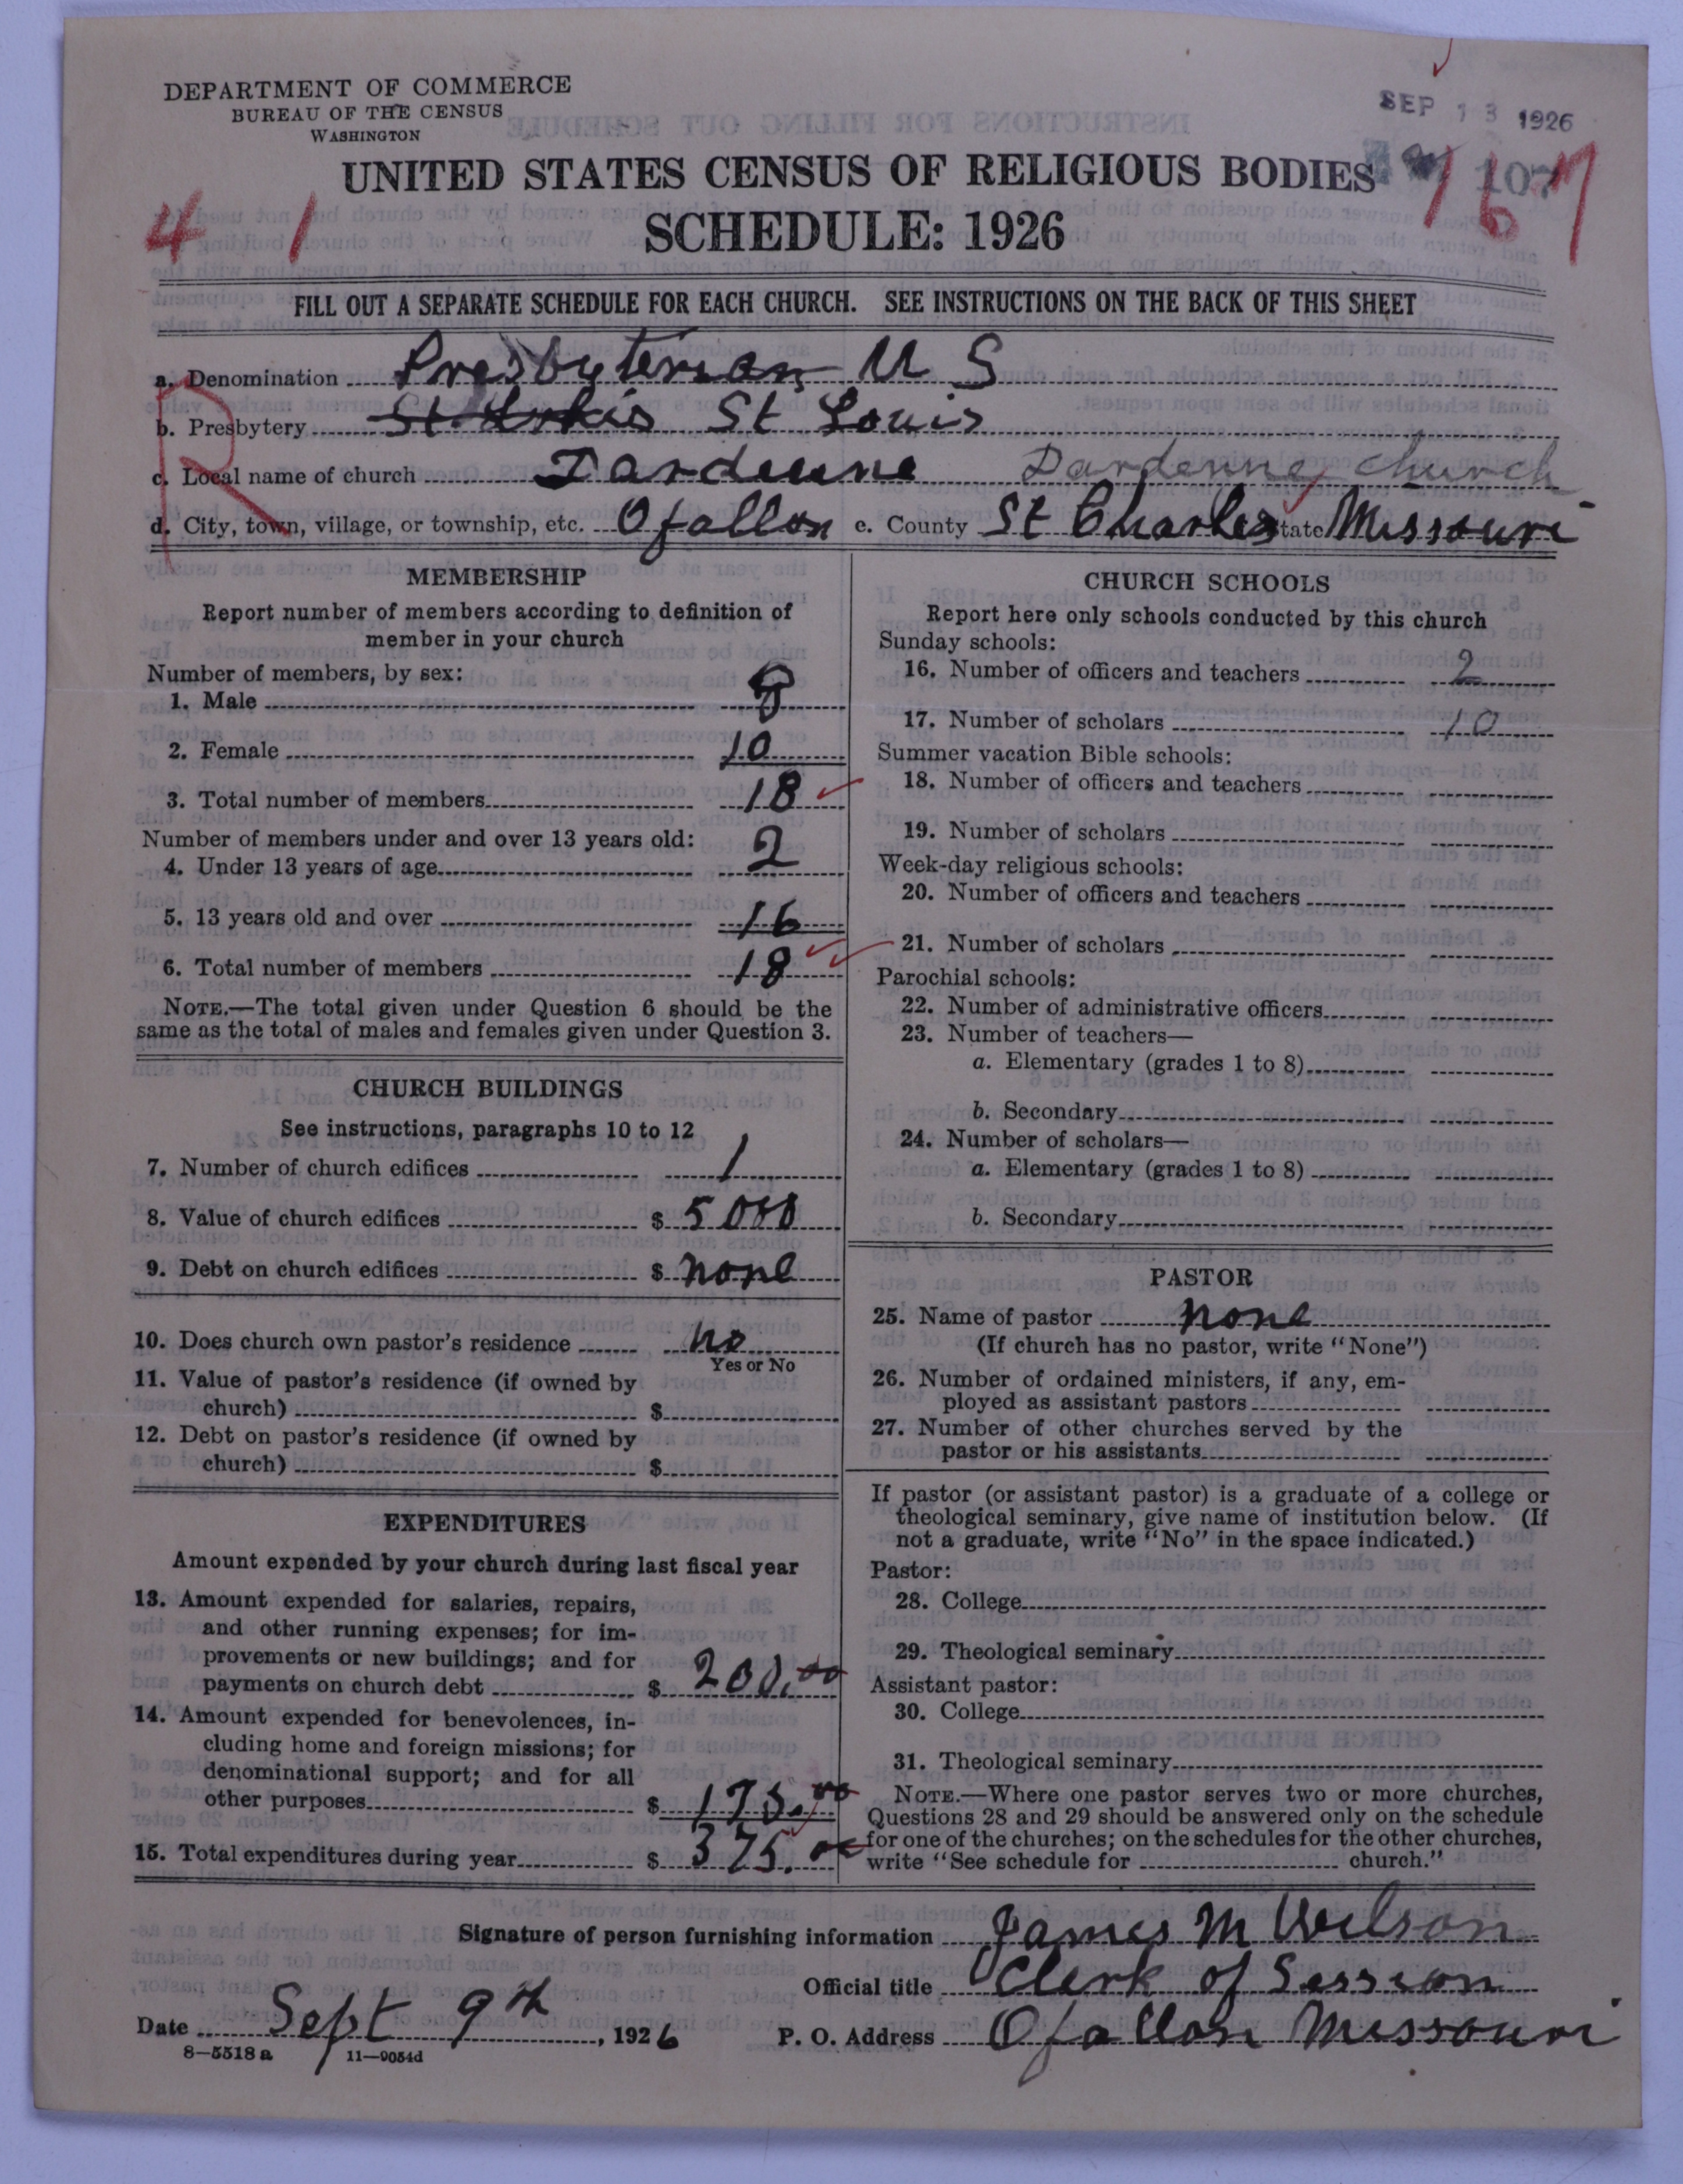 DEPARTMENT OF COMMERCE
BUREAU OF THE CENSUS
WASHINGTON
SEP 13 1926
UNITED STATES CENSUS OF RELIGIOUS BODIES
107
167
4 1
SCHEDULE: 1926
FILL OUT A SEPARATE SCHEDULE FOR EACH CHURCH. SEE INSTRUCTIONS ON THE BACK OF THIS SHEET
a. Denomination Presbyterian U S
b. Presbytery St Louis St Louis
c. Local name of church Dardenne Dardenne church
d. City, town, village, or township, etc. Ofallon e. County St Charles State Missouri
R
MEMBERSHIP
Report number of members according to definition of
member in your church
Number of members, by sex:
1. Male 8
2. Female 10
3. Total number of members 18
Number of members under and over 13 years old:
4. Under 13 years of age 2
5. 13 years old and over 16
6. Total number of members 18
NOTE.—The total given under Question 6 should be the
same as the total of males and females given under Question 3.
CHURCH BUILDINGS
See instructions, paragraphs 10 to 12
7. Number of church edifices 1
8. Value of church edifices $ 5000
9. Debt on church edifices $ none
10. Does church own pastor's residence no
Yes or No
11. Value of pastor's residence (if owned by
church) $
12. Debt on pastor's residence (if owned by
church) $
EXPENDITURES
Amount expended by your church during last fiscal year
13. Amount expended for salaries, repairs,
and other running expenses; for im-
provements or new buildings; and for
payments on church debt $ 200.00
14. Amount expended for benevolences, in-
cluding home and foreign missions; for
denominational support; and for all
other purposes $ 175.00
15. Total expenditures during year $ 375.00
CHURCH SCHOOLS
Report here only schools conducted by this church
Sunday schools:
16. Number of officers and teachers 2
17. Number of scholars 10
Summer vacation Bible schools:
18. Number of officers and teachers
19. Number of scholars
Week-day religious schools:
20. Number of officers and teachers
21. Number of scholars
Parochial schools:
22. Number of administrative officers
23. Number of teachers—
a. Elementary (grades 1 to 8)
b. Secondary
24. Number of scholars—
a. Elementary (grades 1 to 8)
b. Secondary
PASTOR
25. Name of pastor none
(If church has no pastor, write "None")
26. Number of ordained ministers, if any, em-
ployed as assistant pastors
27. Number of other churches served by the
pastor or his assistants
If pastor (or assistant pastor) is a graduate of a college or
theological seminary, give name of institution below. (If
not a graduate, write "No" in the space indicated.)
Pastor:
28. College
29. Theological seminary
Assistant pastor:
30. College
31. Theological seminary
NOTE.—Where one pastor serves two or more churches,
Questions 28 and 29 should be answered only on the schedule
for one of the churches; on the schedules for the other churches,
write "See schedule for church."
Signature of person furnishing information James M Wilson
Official title Clerk of Session
Date Sept 9th, 1926 P. O. Address Ofallon Missouri
8—5518 a 11—9054d